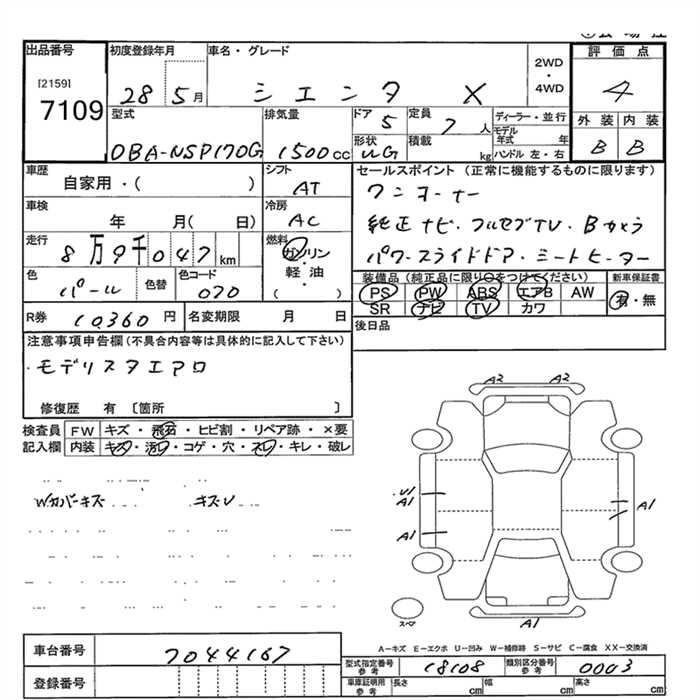 出品番号
[2159]
7109
初度登録年月
28 5月
車名・グレード
シエンタ X
2WD
・
4WD
評価点
4
外装 内装
B B
型式
DBA-NSP170G
排気量
1500cc
ドア 5
形状 UG
定員 7人
積載 kg
ディーラー・並行
モデル年式 年
ハンドル 左・右
車歴
自家用・( )
シフト
AT
車検
年 月( 日)
冷房
AC
走行
8万9千047km
燃料
ガソリン
・
軽油
・
( )
色
パール
色替
色コード
070
セールスポイント (正常に機能するものに限ります)
ワンオーナー
純正ナビ・フルセグTV・Bカメラ
パワースライドドア・シートヒーター
装備品 (純正品に限り○をつけてください)
PS PW ABS エアB AW
SR ナビ TV カワ
新車保証書
有・無
R券 10360円
名変期限 月 日
後日品
注意事項申告欄(不具合内容等は具体的に記入して下さい)
・モデリスタエアロ
修復歴 有〔箇所 〕
検査員記入欄
FW キズ・飛石・ヒビ割・リペア跡・×要
内装 キズ・汚レ・コゲ・穴・スレ・キレ・破レ
Wカバーキズ キズU
A2 A2
U1
A1
A1
A1
A1
スペア
A-キズ E-エクボ U-凹み W-補修跡 S-サビ C-腐食 XX-交換済
車台番号
7044167
登録番号
型式指定番号
参考
18108
類別区分番号
参考
0003
車庫証明用
参考
長さ cm
幅 cm
高さ cm